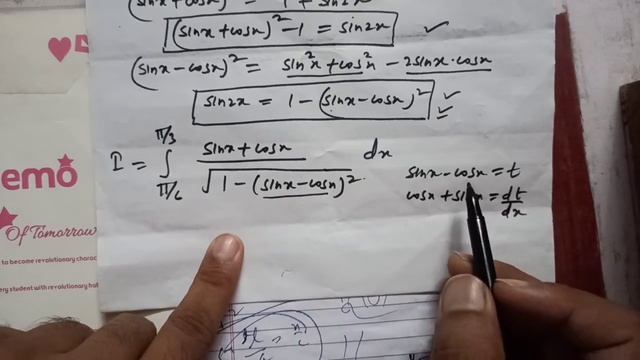 (sinx+cosx)² = 1 + sin2x
(sinx + cosx)² - 1 = sin2x
(sinx - cosx)² = sin²x + cos²x - 2sinx·cosx
sin2x = 1 - (sinx - cosx)²
I = ∫_{π/6}^{π/3} (sinx + cosx) / √(1 - (sinx - cosx)²) dx
sinx - cosx = t
cosx + sinx = dt/dx
emo
Of Tomorrow
to become revolutionary